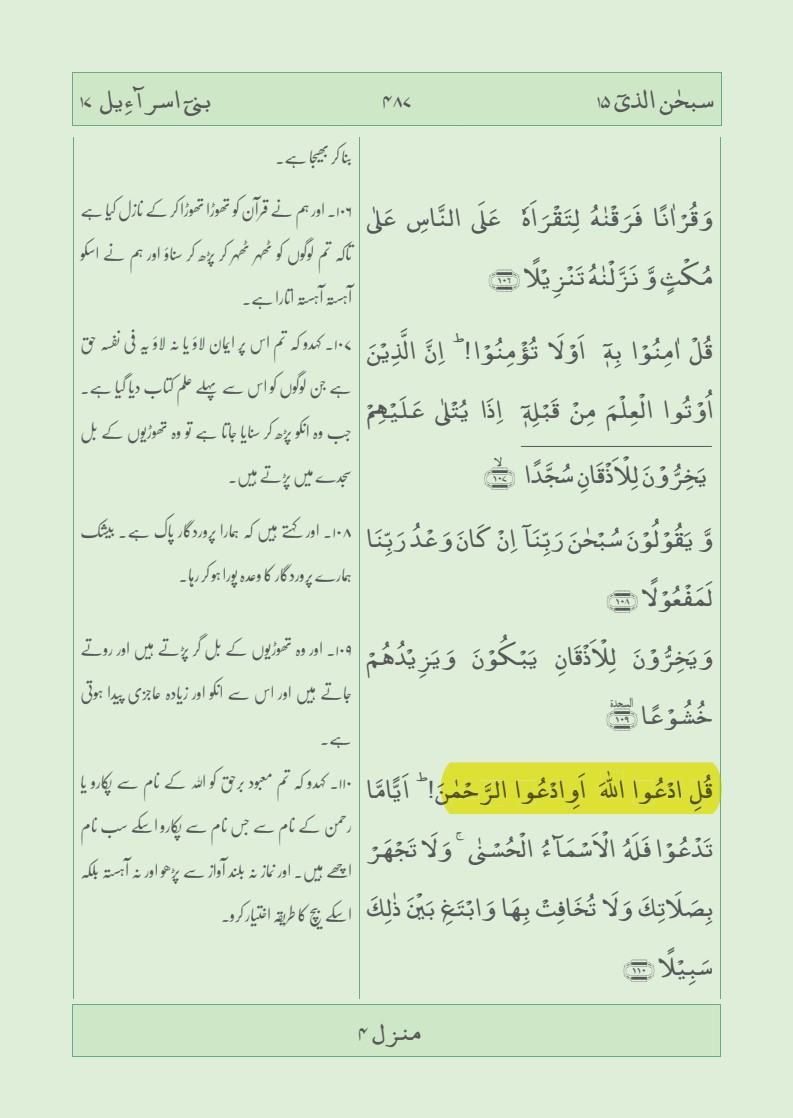 سبحٰن الذیٓ ۱۵
۴۸۷
بنیٓ اسرآءیل ۱۷
وَقُرْاٰنًا فَرَقْنٰهُ لِتَقْرَاَهٗ عَلَى النَّاسِ عَلٰى
مُكْثٍ وَّ نَزَّلْنٰهُ تَنْزِيْلًا ﴿۱۰۶﴾
قُلْ اٰمِنُوْا بِهٖۤ اَوْ لَا تُؤْمِنُوْا! ؕ اِنَّ الَّذِيْنَ
اُوْتُوا الْعِلْمَ مِنْ قَبْلِهٖۤ اِذَا يُتْلٰى عَلَيْهِمْ
يَخِرُّوْنَ لِلْاَذْقَانِ سُجَّدًا ﴿۱۰۷﴾ۙ
وَّ يَقُوْلُوْنَ سُبْحٰنَ رَبِّنَاۤ اِنْ كَانَ وَعْدُ رَبِّنَا
لَمَفْعُوْلًا ﴿۱۰۸﴾
وَ يَخِرُّوْنَ لِلْاَذْقَانِ يَبْكُوْنَ وَ يَزِيْدُهُمْ
خُشُوْعًا ﴿۱۰۹﴾ السجدة
قُلِ ادْعُوا اللّٰهَ اَوِ ادْعُوا الرَّحْمٰنَ! ؕ اَيًّامَّا
تَدْعُوْا فَلَهُ الْاَسْمَآءُ الْحُسْنٰى ۚ وَ لَا تَجْهَرْ
بِصَلَاتِكَ وَ لَا تُخَافِتْ بِهَا وَ ابْتَغِ بَيْنَ ذٰلِكَ
سَبِيْلًا ﴿۱۱۰﴾
بنا کر بھیجا ہے۔
۱۰۶۔ اور ہم نے قرآن کو تھوڑا تھوڑا کر کے نازل کیا ہے
تاکہ تم لوگوں کو ٹھہر ٹھہر کر پڑھ کر سناؤ اور ہم نے اسکو
آہستہ آہستہ اتارا ہے۔
۱۰۷۔ کہدو کہ تم اس پر ایمان لاؤ یا نہ لاؤ یہ فی نفسہ حق
ہے جن لوگوں کو اس سے پہلے علم کتاب دیا گیا ہے۔
جب وہ انکو پڑھ کر سنایا جاتا ہے تو وہ تھوڑیوں کے بل
سجدے میں پڑتے ہیں۔
۱۰۸۔ اور کہتے ہیں کہ ہمارا پروردگار پاک ہے۔ بیشک
ہمارے پروردگار کا وعدہ پورا ہو کر رہا۔
۱۰۹۔ اور وہ تھوڑیوں کے بل گر پڑتے ہیں اور روتے
جاتے ہیں اور اس سے انکو اور زیادہ عاجزی پیدا ہوتی
ہے۔
۱۱۰۔ کہدو کہ تم معبود برحق کو اللہ کے نام سے پکارو یا
رحمن کے نام سے جس نام سے پکارو اسکے سب نام
اچھے ہیں۔ اور نماز نہ بلند آواز سے پڑھو اور نہ آہستہ بلکہ
اسکے بیچ کا طریقہ اختیار کرو۔
منزل ۴